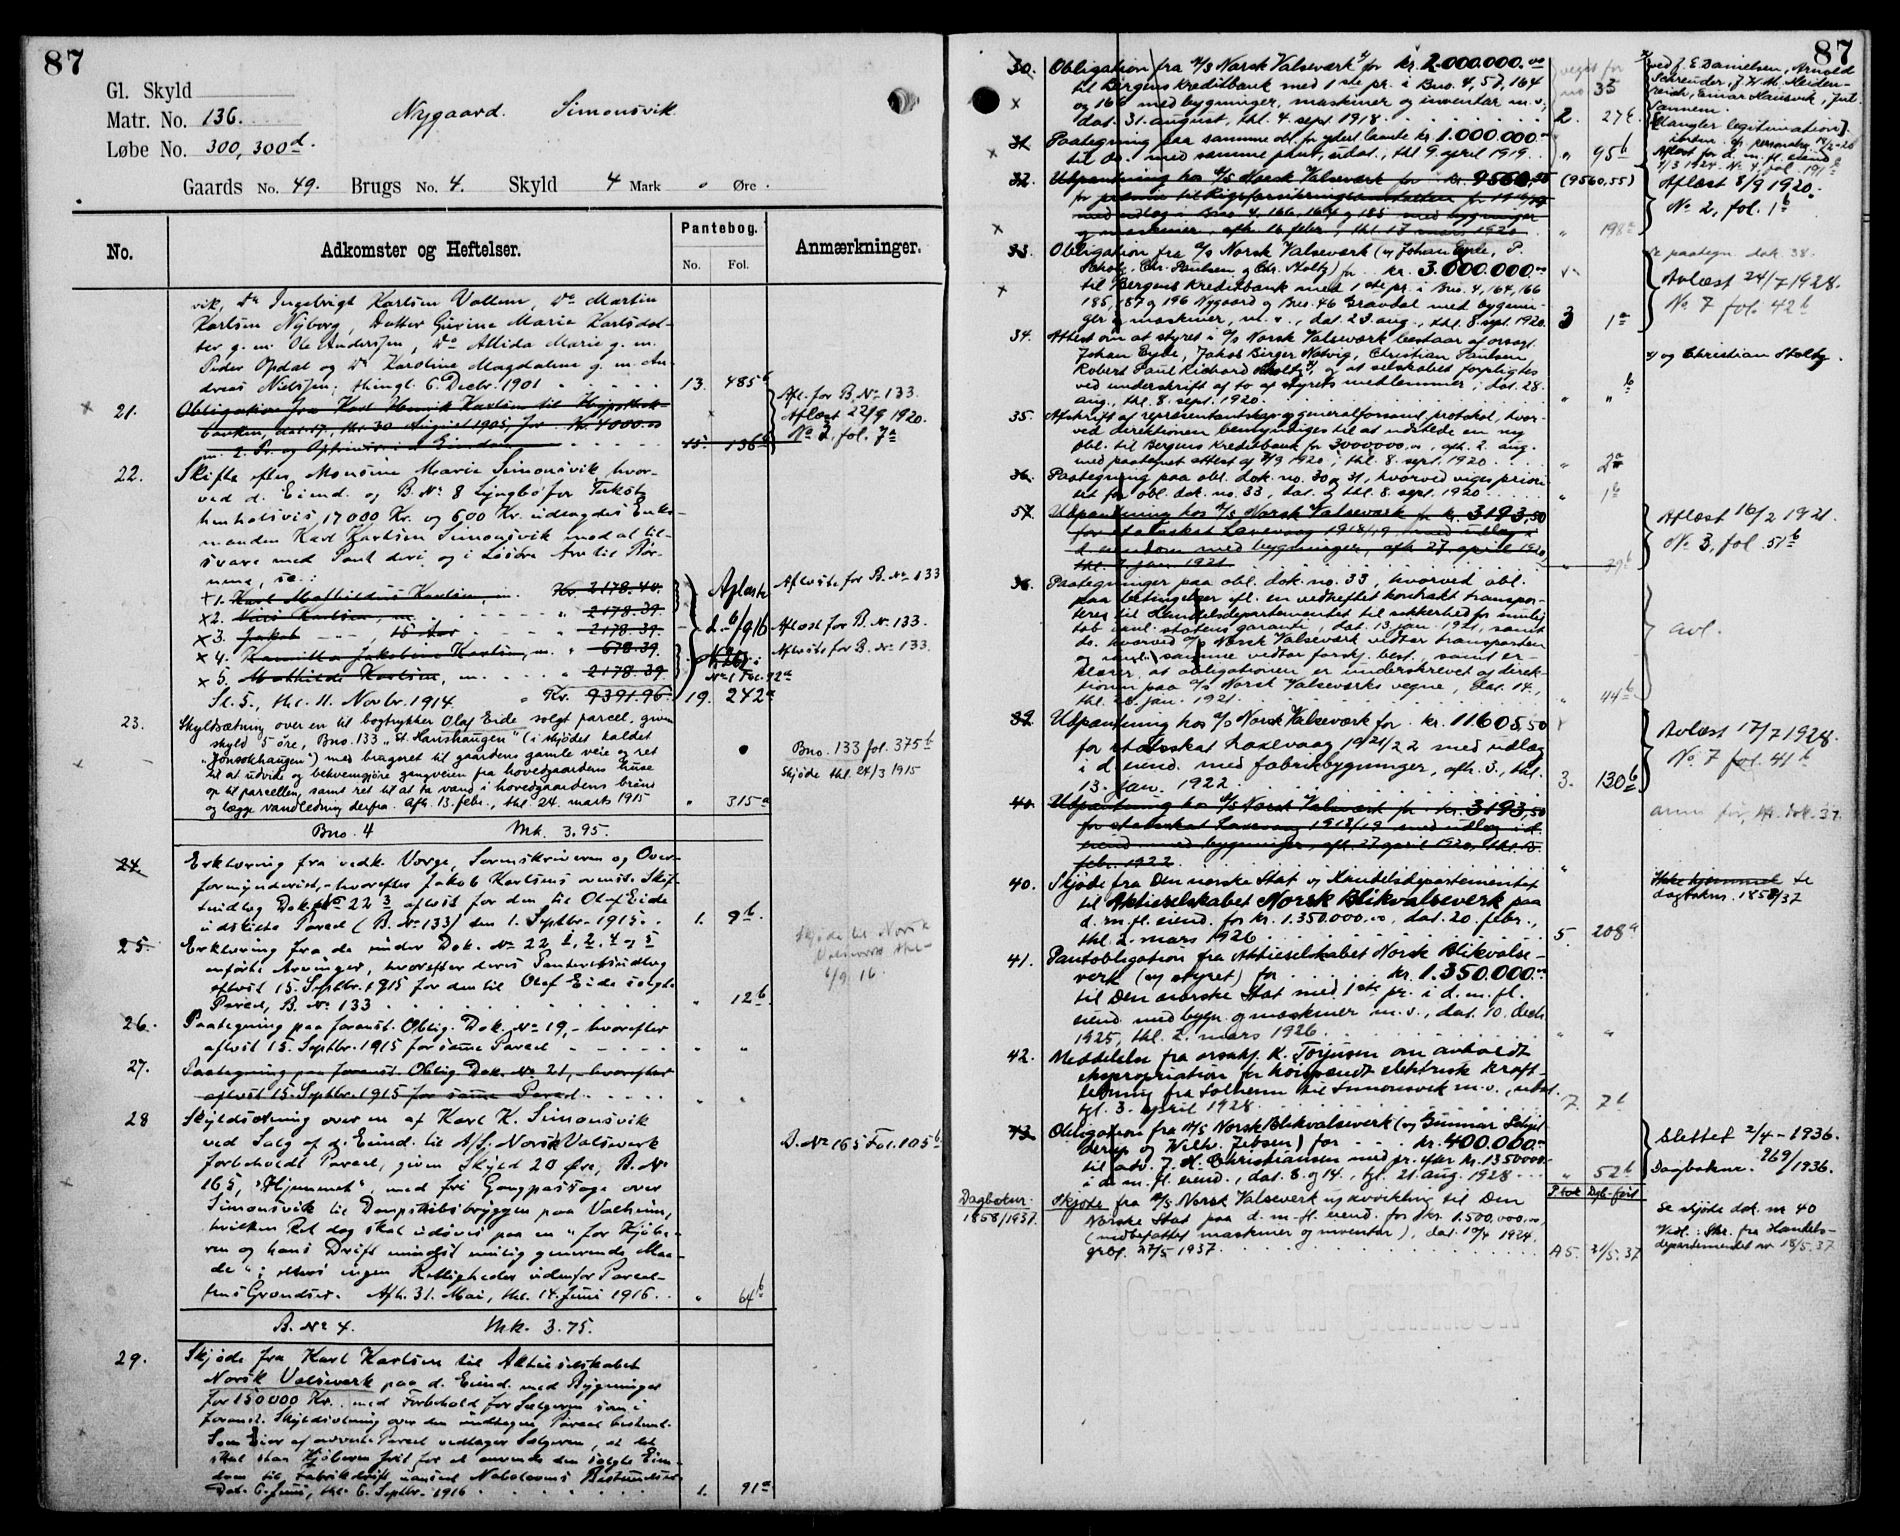 87
Gl. Skyld
Matr. No. 136.
Nygaard. Simonsvik
Løbe No. 300, 300d.
Gaards No. 49. Brugs No. 4. Skyld 4 Mark 0 Øre.
No. Adkomster og Heftelser. Pantebog. Anmærkninger.
No. Fol.
vik, Do Ingebrigt Karlsen Vollen, Do Martin
Karlsen Nyborg, Datter Gurine Marie Karlsdat-
ter g. m. Ole Anderssen, Do Allida Marie g. m.
Peder Opdal og Do Karoline Magdalene g. m. An-
dreas Nielssen; thingl. 6. Decbr. 1901 13. 485b
21. Obligation fra Karl Henrik Karlsen til Hypothek-
banken, dat. 17., thl. 30 August 1905, for Kr. 4000.00
m. 1. Pr. og Opfriser i d. Eiendom 15. 136a
Afl. for B. No 133.
Aflæst 22/9 1920.
No 2. fol. 7a
22. Skifte efter Monsine Marie Simonsvik, hvor-
ved d. Eiend. og B. No 8 Lyngbø for Taksts
henholdsvis 17000 Kr. og 600 Kr. udlagdes Enke-
manden Karl Karlsen Simonsvik mod at til-
svare med Pant deri og i Løsøre Arv til Bør-
nene, sc.:
1. Karl Mathildus Karlsen, m. Kr. 2178.40.
2. Nils Karlsen, m. " 2178.39.
3. Jakob --- 15 Aar " 2178.39.
4. Kamilla Jakobine Karlsen, m. " 678.39.
5. Mathilde Karlsen, m. 2178.39
Aflæste
d. 6/9 16
No 1 Fol. 92a
Afløste for B. No 133
Afløst for B. No 133.
Afløste for B. No 133.
Sl. 5., thl. 11. Novbr. 1914 " Kr. 9391.96. 19. 242a
23. Skyldsætning over en til bogtrykker Olaf Eide solgt parcel, given
skyld 5 øre, Bno. 133 "St. Hanshaugen" (i skjødet kaldet
"Jonsokhaugen") med brugsret til gaardens gamle veie og ret
til at udvide og bekvemgjøre gangveien fra hovedgaardens huse
op til parcellen, samt ret til at ta vand i hovedgaardens brønd
og lægge vandledning derfra. Afh. 13. febr., thl. 24. marts 1915 " 315a
Bno. 133 fol. 375b
Skjøde thl. 24/3 1915
Bno. 4 Mk. 3.95.
24. Erklæring fra vedk. Værge, Sorenskriveren og Over-
formynderiet, - hvorefter Jakob Karlsens ovenst. Skif-
teudlæg Dok. No 22 3 afløst for den til Olaf Eide
udskilte Parcel (B. No 133) den 1. Septbr. 1915. 1. 9b.
25. Erklæring fra de under Dok. No 22 1, 2, 4 og 5
anførte Arvinger, hvorefter deres Panteretsudlæg
afløst 15. Septbr. 1915 for den til Olaf Eide solgte
Parcel, B. No 133 " 12b
Skjøde til Norsk
Valseverk thl.
6/9. 16.
26. Paategning paa foranst. Oblig. Dok. No 19, - hvorefter
afløst 15. Septbr. 1915 for samme Parcel " "
27. Paategning paa foranst. Oblig. Dok. No 21, - hvorefter
afløst 15. Septbr. 1915 for samme Parcel " "
28 Skyldsdeling over en af Karl K. Simonsvik
ved Salg af d. Eiend. til A/S. Norsk Valseverk
forbeholdt Parcel, given Skyld 20 Øre, B. No
165, "Hjemmet", med fri Gangpassage over
Simonsvik til Dampskibsbryggen paa Valheim,
hvilken Ret dog skal udøves paa en "for Kjøbe-
ren og hans Drift mindst mulig generende Maa-
de"; ellers ingen Rettigheder udenfor Parcel-
lens Grændser. Afh. 31. Mai, thl. 14. Juni 1916. " 64b
B. No 165 Fol. 105b
B. No 4. Mk. 3.75.
29. Skjøde fra Karl Karlsen til Aktieselskabet
Norsk Valseverk paa d. Eiend. med Bygninger
for 150000 Kr. med Forbehold for Sælgeren som i
foranst. Skyldsdeling over den undtagne Parcel bestemt.
Som Eier af nævnte Parcel vedtager Sælgeren, at det
skal staa Kjøberen frit for at anvende den solgte Eien-
dom til Fabrikdrift uanseet Nabolovens Bestemmelser
Dat. 6. Juni, thl. 6. Septbr. 1916 1. 91a
87
30. Obligation fra A/S Norsk Valseverk x) for kr. 2.000.000.00
til Bergens Kreditbank med 1ste pr. i Bno. 4, 57, 164
og 166 med bygninger, maskiner og inventar m. v.,
dat. 31. august, thl. 4. sept 1918. 2. 276
x) ved J. E. Danielsen, Arnold
Schreuder, J. H. M. Heiden-
reich, Einar Hausvik, Jul.
Sannem.
[Mangler legitimation].
31. Paategning paa samme obl. for yderl. laante kr. 1.000.000.00
til do. med samme pant, udat., thl. 9. april 1919. " 95b
32. Udpantning hos A/S Norsk Valseverk for kr. 9560,55 (9560,55)
for præmie til Rigsforsikringsanstalten for
med udlæg i Bno. 4, 166, 164 og 185 med bygninger
og maskiner, afh. 16. febr., thl. 17. mars 1920 " 198a
Aflæst 8/9 1920.
No 2, fol. 1b
33. Obligation fra A/S Norsk Valseverk (v/ Johan Eyde, P.
Scholtz, Chr. Paulsen og Chr. Stoltz) for kr. 3.000.000.00
til Bergens Kreditbank med 1ste pr. i Bno. 4, 164, 166
185, 187 og 196 Nygaard og Bno. 46 Gravdal med bygnin-
ger og maskiner, m. v., dat. 23. aug., thl. 8. sept. 1920. 3 1a
se paategn. dok. 38.
Avlæst 24/7 1928.
No 7 fol. 42b
34. Attest om at styret i A/S Norsk Valseverk bestaar af orsagf.
Johan Eyde, Jakob Birger Natvig, Christian Paulsen,
Robert Paul Richard Scholtz x), og at selskabet forpligtes
ved underskrift af to af styrets medlemmer; dat. 28.
aug., thl. 8. sept. 1920. " " b
x) og Christian Stoltz.
35. Afskrift af repræsentantskap- og generalforsaml. protokol, hvor-
ved direktionen bemyndiges til at udstede en ny
obl. til Bergens Kreditbank for 3000,000.00, afh. 2. aug.
med paategnet attest af 7/9 1920; thl. 8. sept. 1920 " 2a
36. Paategning paa obl. dok. no. 30 og 31, hvorved viges priori-
tet for obl. dok. no. 33, dat. og thl. 8. sept. 1920 " 1b
37. Udpantning hos A/S Norsk Valseverk for kr. 3193,50
for statsskat Laxevaag 1918/19 med udlæg i
d. eiendom med bygninger, afh. 27. april 1920
thl. 7. jan. 1921. " 39b
Aflæst 16/2 1921.
No 3, fol. 51b
38. Paategninger paa obl. dok. no. 33, hvorved obl.
paa betingelser efl. en vedheftet kontrakt transpor-
teres til Handelsdepartementet til sikkerhed for mulig
tab ianl. statens garanti, dat. 13. jan. 1921, samt
do. hvorved A/S Norsk Valseverk vedtar transporten
og samme vedtar forskj. best., samt er-
klærer at obligationen er underskrevet af direk-
tionen paa A/S Norsk Valseverks vegne, dat. 14.,
thl. 28. jan. 1921. " 44b
avl.
39. Udpantning hos A/S Norsk Valseverk for kr. 11605,50
for statsskat Laxevaag 1921/22 med udlæg
i d. eiend. med fabrikbygninger, afh. 3., thl.
13. jan. 1922. 3. 130b
Avlæst 17/7 1928.
No 7 fol. 41b
40. Udpantning hos A/S Norsk Valseverk for kr. 3193,50
for statsskat Laxevaag 1918/19 med udlæg i d.
eiend. med bygninger, afh. 27 april 1920, thl. 13.
febr. 1922. "
40. Skjøde fra Den norske Stat v/ Handelsdepartementet
til Aktieselskabet Norsk Blikvalseverk paa
d. m. fl. eiend. for kr. 1.350.000.00, dat. 20. febr.,
thl. 2. mars 1926. 5. 208a
Ikke hjemmel se
dagboknr. 1858/37
41. Pantobligation fra Aktieselskabet Norsk Blikvalse-
verk (v/ styret) for kr. 1.350.000.00
til Den norske Stat med 1ste pr. i d. m. fl.
eiend. med bygn. og maskiner m. v., dat. 10. decb.
1925, thl. 2. mars 1926. " "
42. Meddelelse fra orsakf. K. Torjusen om avholdt
ekspropriation for høispendt elektrisk kraft-
ledning fra Solheim til Simonsvik m. v., udat.
tgl. 3. april 1928. 7. 7b
43. Obligation fra A/S Norsk Blikvalseverk (v/ Gunnar Schjel-
derup og Wilh. Jebsen) for kr. 400.000.00
til adv. J. H. Christiansen med pr. efter kr. 1350000.-
i d. m. fl. eiend., dat. 8. og 14., tgl. 21. aug. 1928 " 52b
Slettet 2/4 - 1936.
Dagboknr. 969/1936.
P.bok Dgb.ført
Dagboknr.
1858/1937.
Skjøde fra A/S Norsk Valseverk u/ avvikling til Den
Norske Stat paa d. m. fl. eiend. for kr. 1.500.000.00,
(medbefattet maskiner og inventar), dat. 10/4 1924,
grbf. 27/5 1937. A 5. 31/5.37
Se skjøde dok. nr. 40
Vedl.: Skr. fra Handels-
departementet av 18/5.37